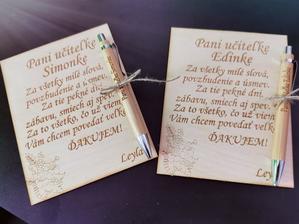 Pani učiteľke
Simonke
Za všetky milé slová,
povzbudenie a úsmev.
Za tie pekné dni,
zábavu, smiech aj spev.
Za to všetko, čo už viem
Vám chcem povedať veľké
ĎAKUJEM!
Leyla
Pani učiteľke
Edinke
Za všetky milé slová,
povzbudenie a úsmev.
Za tie pekné dni,
zábavu, smiech aj spev.
Za to všetko, čo už viem
Vám chcem povedať veľké
ĎAKUJEM!
Leyla